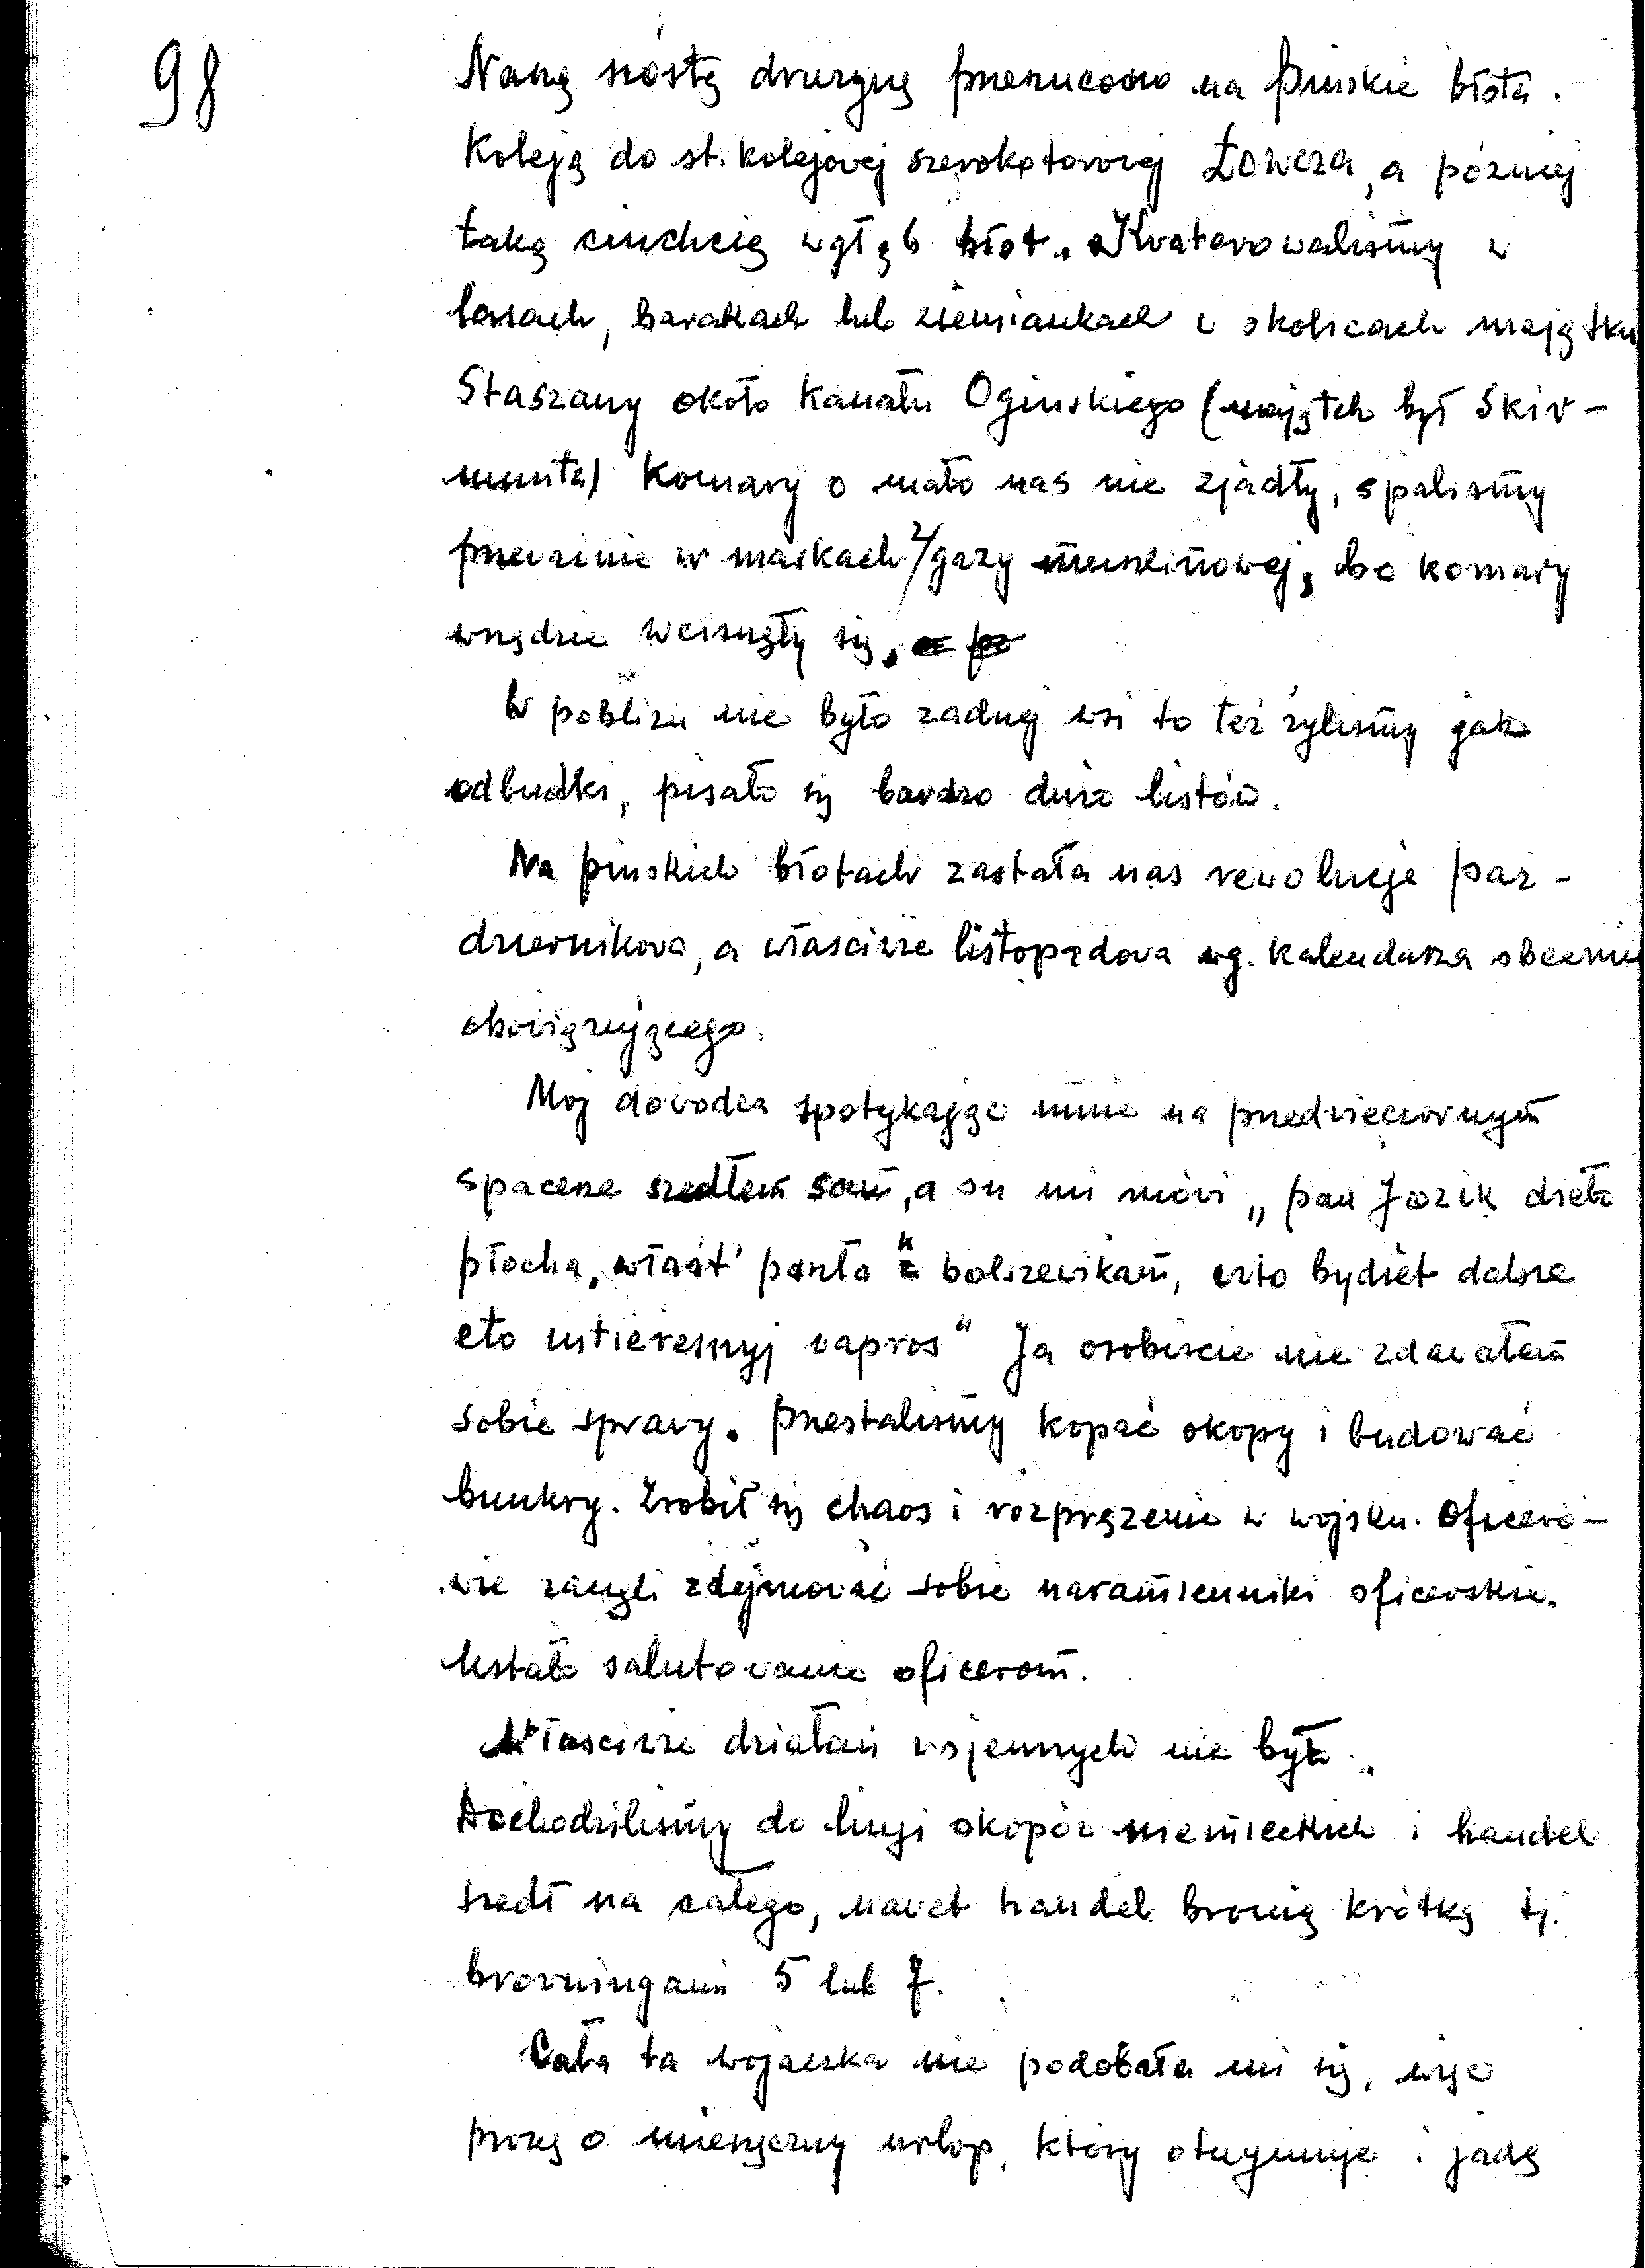 98
Naszą szóstą drużynę przerzucono na Pińskie błota.
Koleją do st. kolejowej szerokotorowej Łowcza, a później
taką ciuchcią wgłąb błot. Kwaterowaliśmy w
lasach, barakach lub ziemiankach w okolicach majątku
Staszany około Kanału Ogińskiego (majątek był Skir-
munta) Komary o mało nas nie zjadły, spaliśmy
przeważnie w maskach z gazy muślinowej, bo komary
wszędzie wcisnęły się,
W pobliżu nie było żadnej wsi to też żyliśmy jak
odludki, pisało się bardzo dużo listów.
Na pińskich błotach zastała nas rewolucja paź-
dziernikowa, a właściwie listopadowa wg. kalendarza obecnie
obowiązującego.
Mój dowódca spotykając mnie na przedwieczornym
spacerze szedłem sam, a on mi mówi „pan Jozik dieło
płocha, właśt' paszła k bolszewikam, czto bydiet dalsze
eto intieresnyj vapros" Ja osobiście nie zdawałem
sobie sprawy. Przestaliśmy kopać okopy i budować
bunkry. Zrobił się chaos i rozprężenie w wojsku. Oficero-
wie zaczęli zdejmować sobie naramienniki oficerskie.
Ustało salutowanie oficerom.
Właściwie działań wojennych nie było.
Dochodziliśmy do linji okopów niemieckich i handel
szedł na całego, nawet handel bronią krótką tj.
browningami 5 lub 7.
Cała ta wojaczka nie podobała mi się, więc
proszę o miesięczny urlop, który otrzymuję i jadę